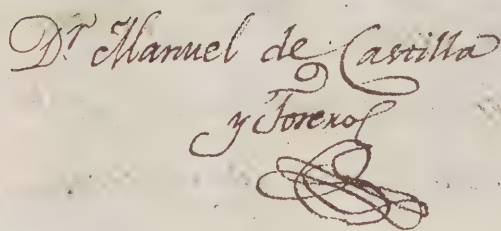 Dr Manuel de Castilla
y Forero